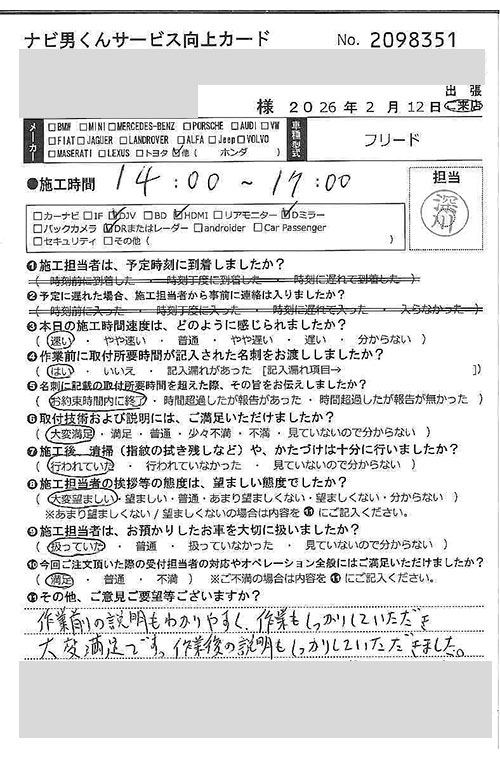 ナビ男くんサービス向上カード No. 2098351
様 2026年2月12日 出張・ご来店
メーカー □BMW □MINI □MERCEDES-BENZ □PORSCHE □AUDI □VW
□FIAT □JAGUER □LANDROVER □ALFA □Jeep □VOLVO
□MASERATI □LEXUS □トヨタ ☑他 ( ホンダ )
車種型式 フリード
●施工時間 14:00 ~ 17:00
担当
深川
□カーナビ □IF ☑DJV □BD ☑HDMI □リアモニター ☑Dミラー
□バックカメラ ☑DRまたはレーダー □androider □Car Passenger
□セキュリティ □その他 ( )
❶施工担当者は、予定時刻に到着しましたか?
( 時刻前に到着した ・ 時刻丁度に到着した ・ 時刻に遅れて到着した )
❷予定に遅れた場合、施工担当者から事前に連絡は入りましたか?
( 時刻前に入った ・ 時刻丁度に入った ・ 時刻に遅れて入った ・ 入らなかった )
❸本日の施工時間速度は、どのように感じられましたか?
( 速い ・ やや速い ・ 普通 ・ やや遅い ・ 遅い ・ 分からない )
❹作業前に取付所要時間が記入された名刺をお渡ししましたか?
( はい ・ いいえ ・ 記入漏れがあった [記入漏れ項目→ ])
❺名刺に記載の取付所要時間を超えた際、その旨をお伝えしましたか?
( お約束時間内に終了 ・ 時間超過したが報告があった ・ 時間超過したが報告が無かった )
❻取付技術および説明には、ご満足いただけましたか?
( 大変満足 ・ 満足 ・ 普通 ・ 少々不満 ・ 不満 ・ 見ていないので分からない )
❼施工後、清掃(指紋の拭き残しなど)や、かたづけは十分に行いましたか?
( 行われていた ・ 行われていなかった ・ 見ていないので分からない )
❽施工担当者の挨拶等の態度は、望ましい態度でしたか?
( 大変望ましい ・ 望ましい ・ 普通 ・ あまり望ましくない ・ 望ましくない ・ 分からない )
※あまり望ましくない/望ましくないの場合は内容を⓫にご記入ください。
❾施工担当者は、お預かりしたお車を大切に扱いましたか?
( 扱っていた ・ 普通 ・ 扱っていなかった ・ 見ていないので分からない )
❿今回ご注文頂いた際の受付担当者の対応やオペレーション全般にはご満足いただけましたか?
( 満足 ・ 普通 ・ 不満 ) ※ご不満の場合は内容を⓫にご記入ください。
⓫その他、ご意見ご要望等ございますか?
作業前の説明もわかりやすく、作業もしっかりしていただき
大変満足です。作業後の説明もしっかりしていただきました。